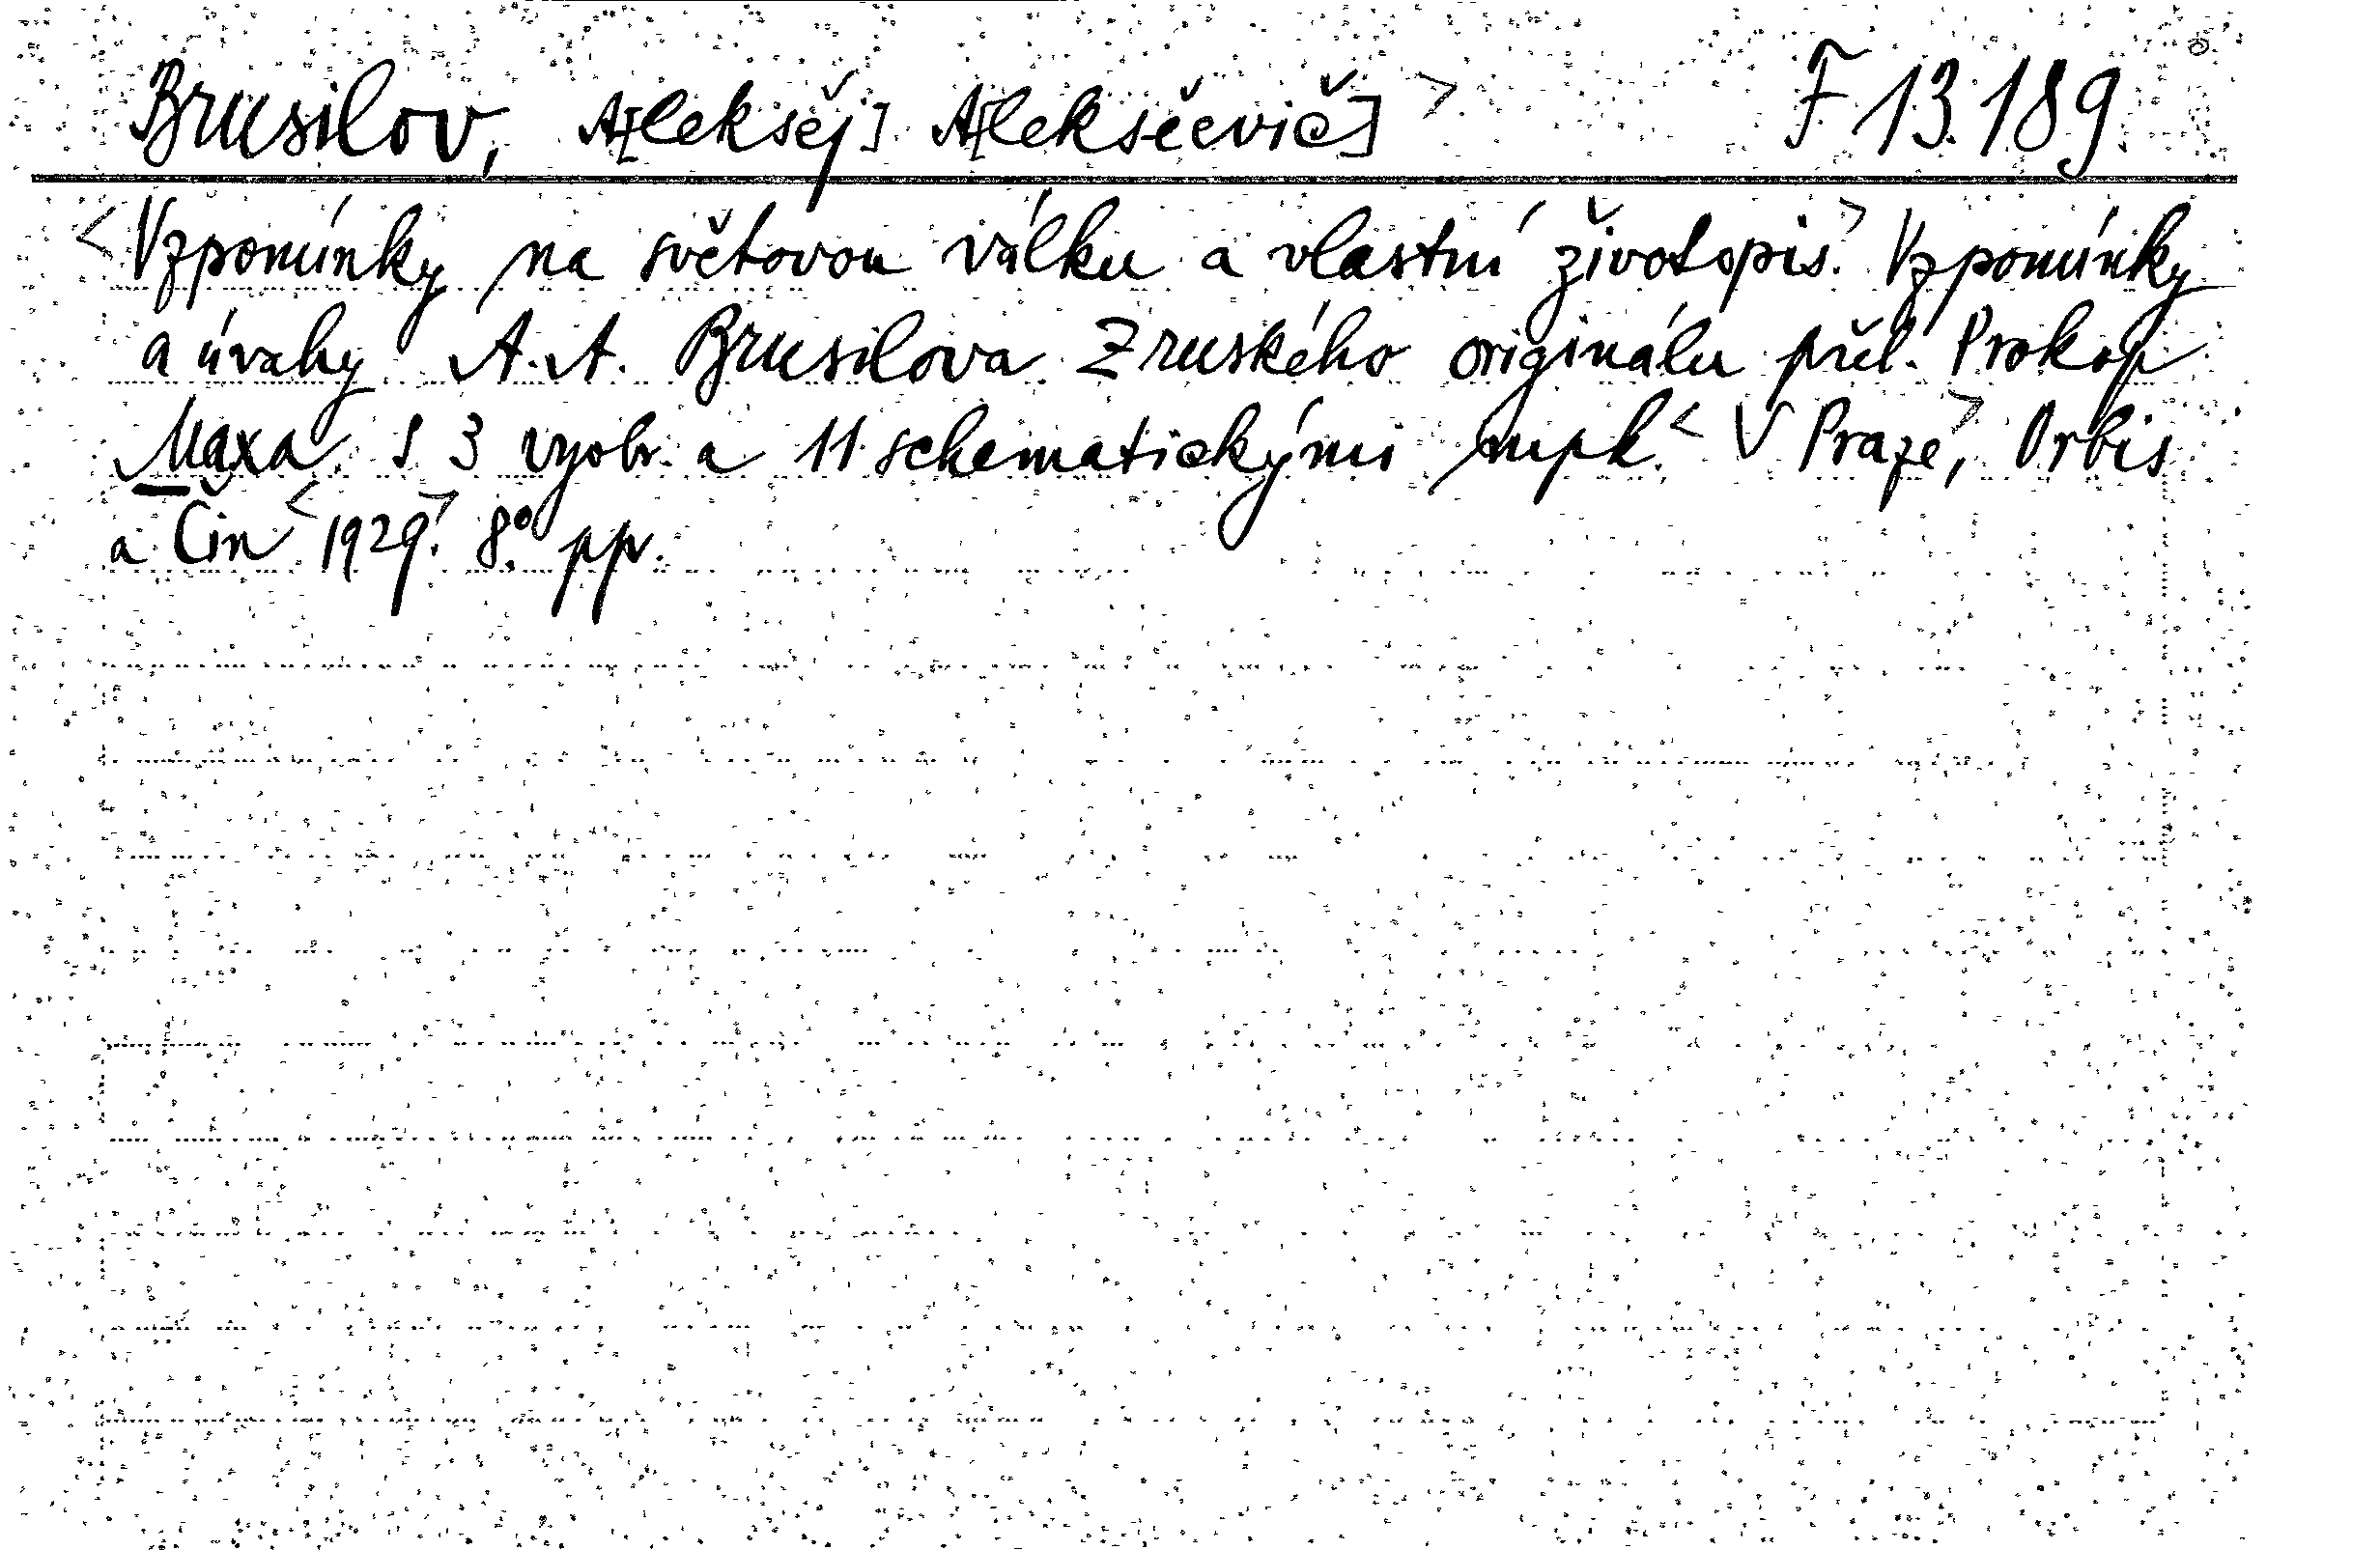 Brusilov, A[leksěj] A[leksěevič] > F 13.189
<Vzpomínky na světovou válku a vlastní životopis.> Vzpomínky
a úvahy A. A. Brusilova. Z ruského originálu přel. Prokop
Maxa. S 3 vyobr. a 11 schematickými mpk. < V Praze >, Orbis
a Čin < 1929.> 8° pp.